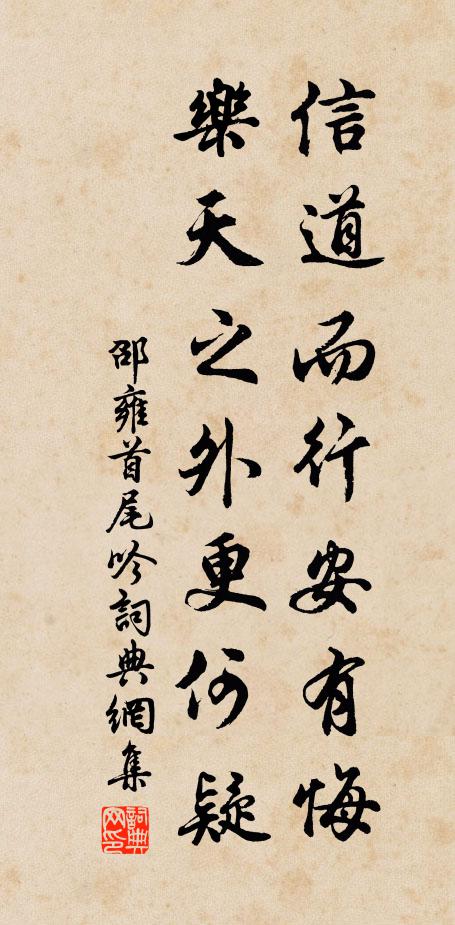 信道而行安有悔
樂天之外更何疑
邵雍首尾吟詞典網集
詞典网印